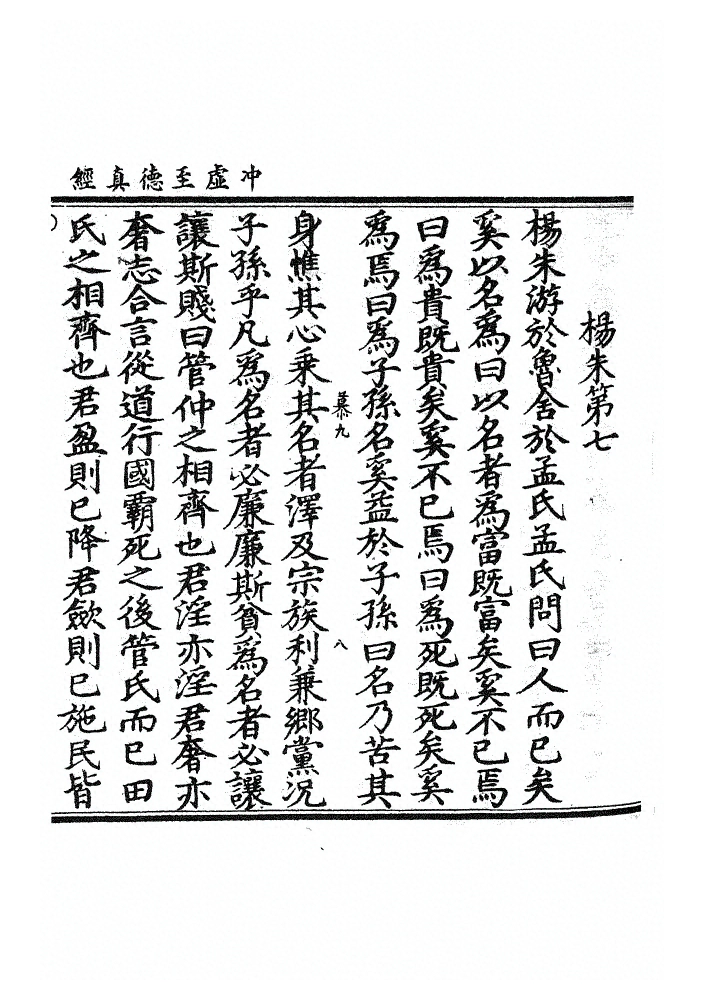 冲虛至德真經
楊朱第七
楊朱游於魯舍於孟氏孟氏問曰人而已矣
奚以名為曰以名者為富既富矣奚不已焉
曰為貴既貴矣奚不已焉曰為死既死矣奚
為焉曰為子孫名奚益於子孫曰名乃苦其
慕九
八
身燋其心乘其名者澤及宗族利兼鄉黨況
子孫乎凡為名者必廉廉斯貧為名者必讓
讓斯賤曰管仲之相齊也君淫亦淫君奢亦
奢志合言從道行國霸死之後管氏而已田
氏之相齊也君盈則已降君歛則已施民皆